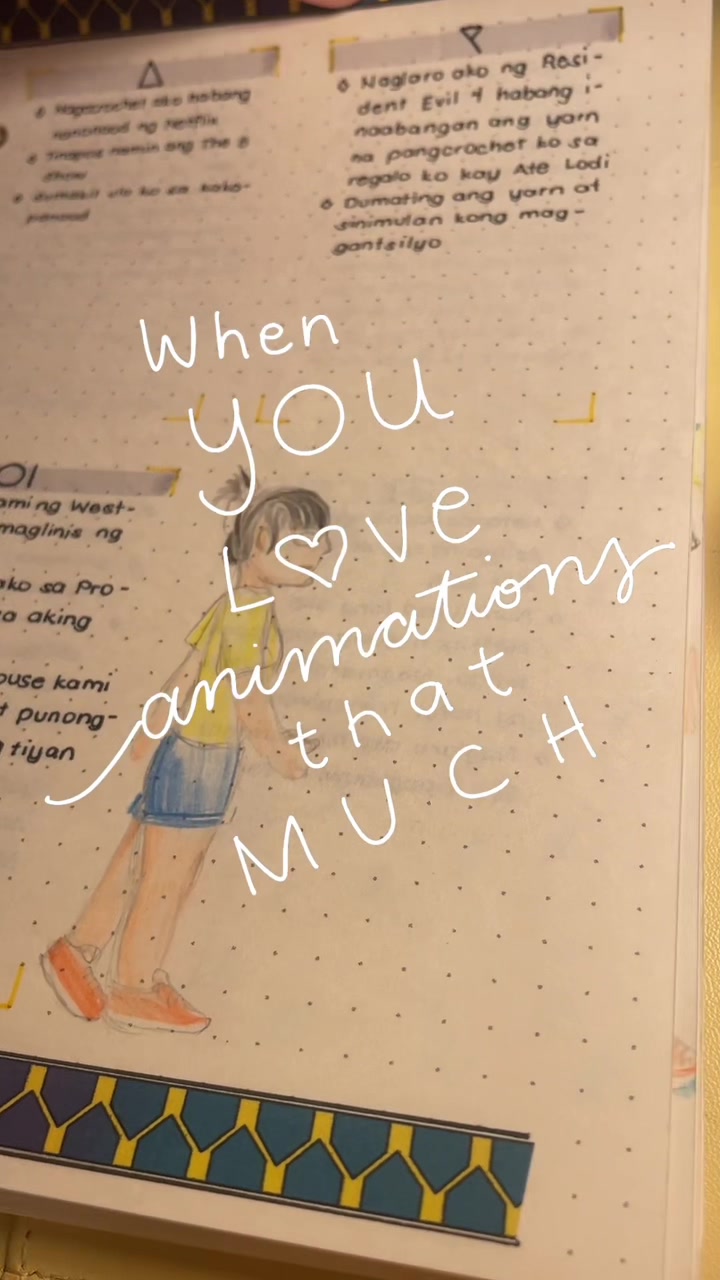 Nagcrochet ako habang
nanonood ng Netflix
Tinapos namin ang The 8
Show
Sumakit ulo ko sa kaka-
panood
Naglaro ako ng Resi-
dent Evil 4 habang i-
naabangan ang yarn
na pangcrochet ko sa
regalo ko kay Ate Lodi
Dumating ang yarn at
sinimulan kong mag-
gantsilyo
When
YOU
LOVE
animations
that
MUCH
01
aming West-
maglinis ng
ako sa Pro-
a aking
ouse kami
t punong-
tiyan